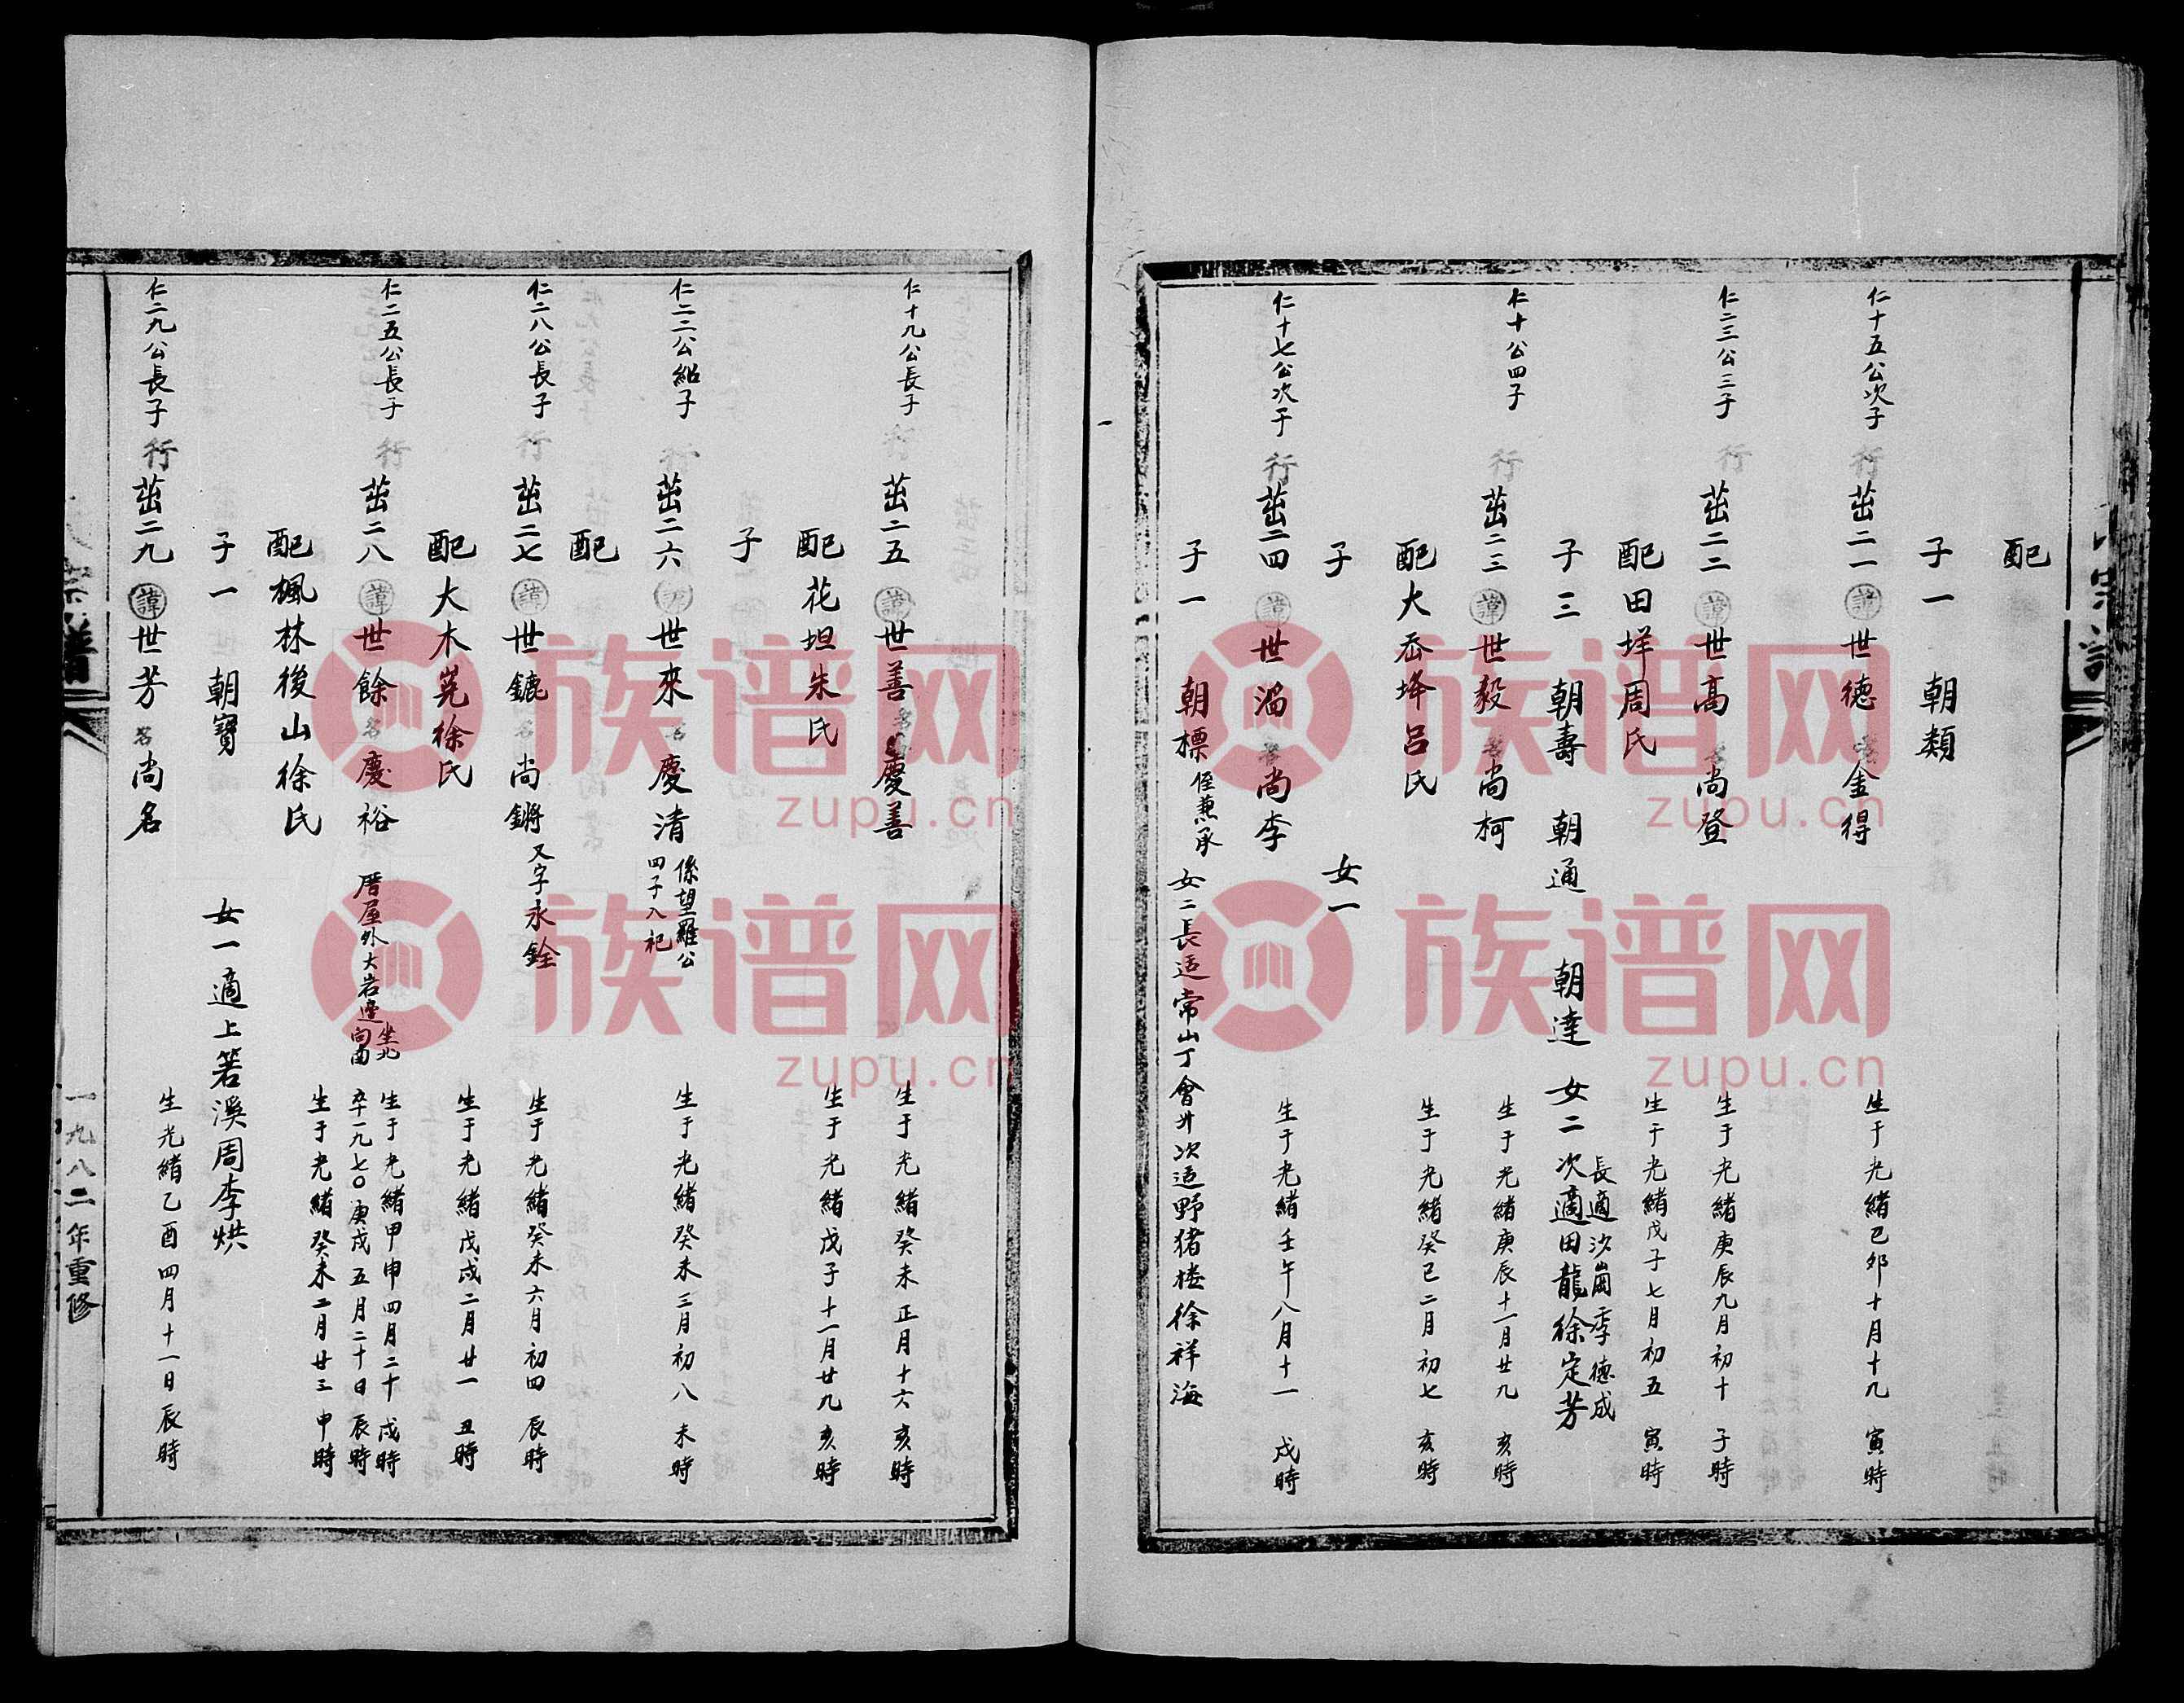 配
子一 朝類
仁十五公次子 行茁二一 諱世德 名金得 生于光緒己卯十月十九 寅時
仁二三公三子 行茁二二 諱世高 名尚登 生于光緒庚辰九月初十 子時
配田垟周氏 生于光緒戊子七月初五 寅時
子三 朝壽 朝通 朝達 女二 長適沙崗季德成 次適田龍徐定芳
仁十公四子 行茁二三 諱世毅 名尚柯 生于光緒庚辰十一月廿九 亥時
配大岙垟呂氏 生于光緒癸巳二月初七 亥時
子 女一
仁十七公次子 行茁二四 諱世滔 名尚李 生于光緒壬午八月十一 戌時
子一 朝標 侄兼承 女二 長适常山丁會廾 次适野猪楼徐祥海
仁十九公長子 行茁二五 諱世善 名慶善 生于光緒癸未正月十六 亥時
配花坦朱氏 生于光緒戊子十一月廿九 亥時
子
仁二二公紹子 行茁二六 諱世來 名慶清 係望羅公四子入祀 生于光緒癸未三月初八 未時
配
仁二八公長子 行茁二七 諱世鏕 名尚鏘 又字永銓 生于光緒癸未六月初四 辰時
配大木峞徐氏 生于光緒戊戌二月廿一 丑時
仁二五公長子 行茁二八 諱世餘 名慶裕 厝屋外大岩邊 坐北向南 生于光緒甲申四月二十 戌時 卒一九七〇庚戌五月二十日 辰時
配楓林後山徐氏 生于光緒癸未二月廿三 申時
子一 朝寶 女一 適上箬溪周李烘
仁二九公長子 行茁二九 諱世芳 名尚名 生光緒乙酉四月十一日辰時
宗譜
一九八二年重修
族谱网
zupu.cn
族谱网
zupu.cn
族谱网
zupu.cn
族谱网
zupu.cn